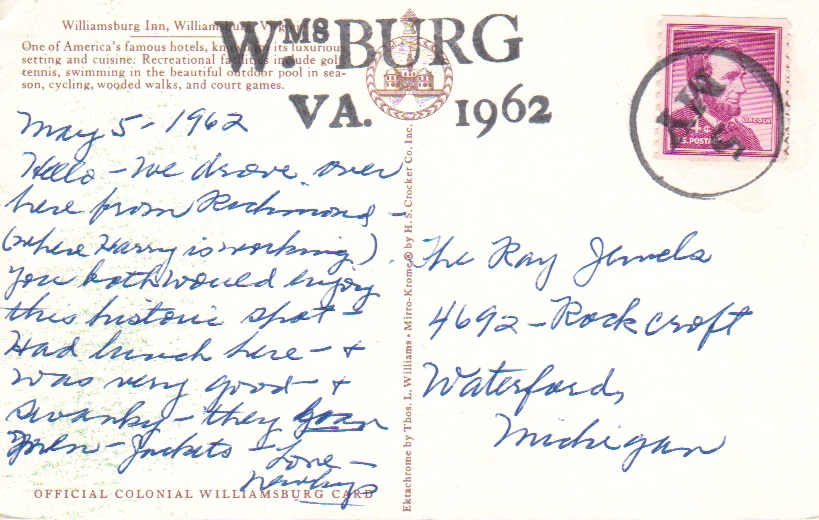 Williamsburg Inn, Williamsburg, Virginia
One of America's famous hotels, known for its luxurious
setting and cuisine. Recreational facilities include golf,
tennis, swimming in the beautiful outdoor pool in sea-
son, cycling, wooded walks, and court games.
WMSBURG
VA. 1962
MAY
5
LINCOLN
4¢
U.S. POSTAGE
May 5 - 1962
Hello - We drove over
here from Richmond -
(where Harry is working)
You both would enjoy
this historic spot -
Had lunch here - +
was very good - +
swanky - they loan
men - Jackets - Love -
Newbys
The Ray Jewels
4692 - Rockcroft
Waterford,
Michigan
Ektachrome by Thos. L. Williams • Mirro-Krome® by H. S. Crocker Co. Inc.
OFFICIAL COLONIAL WILLIAMSBURG CARD